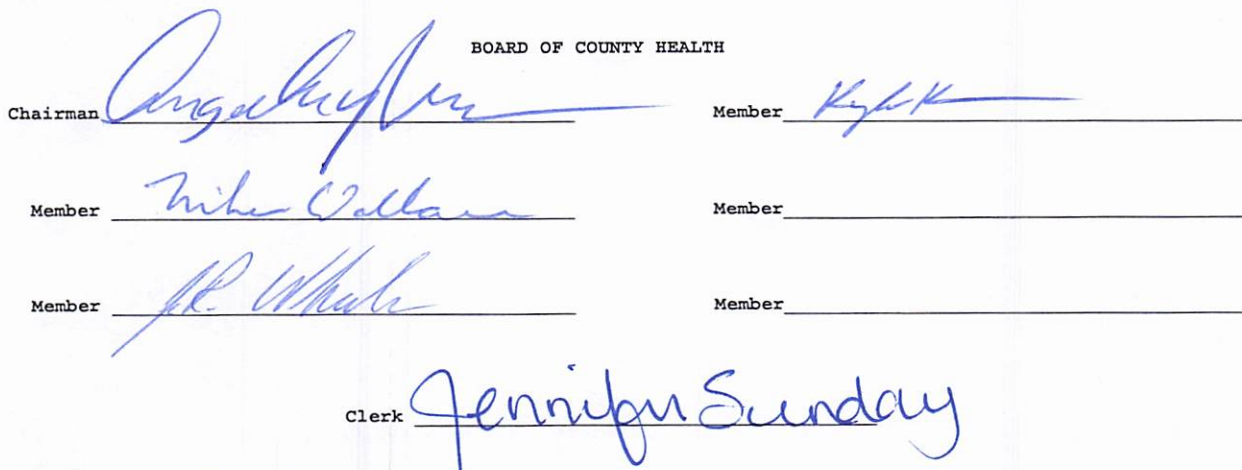 BOARD OF COUNTY HEALTH
Chairman
Member
Member Mike Wallace
Member
Member J.R.
Member
Clerk Jennifer Sunday